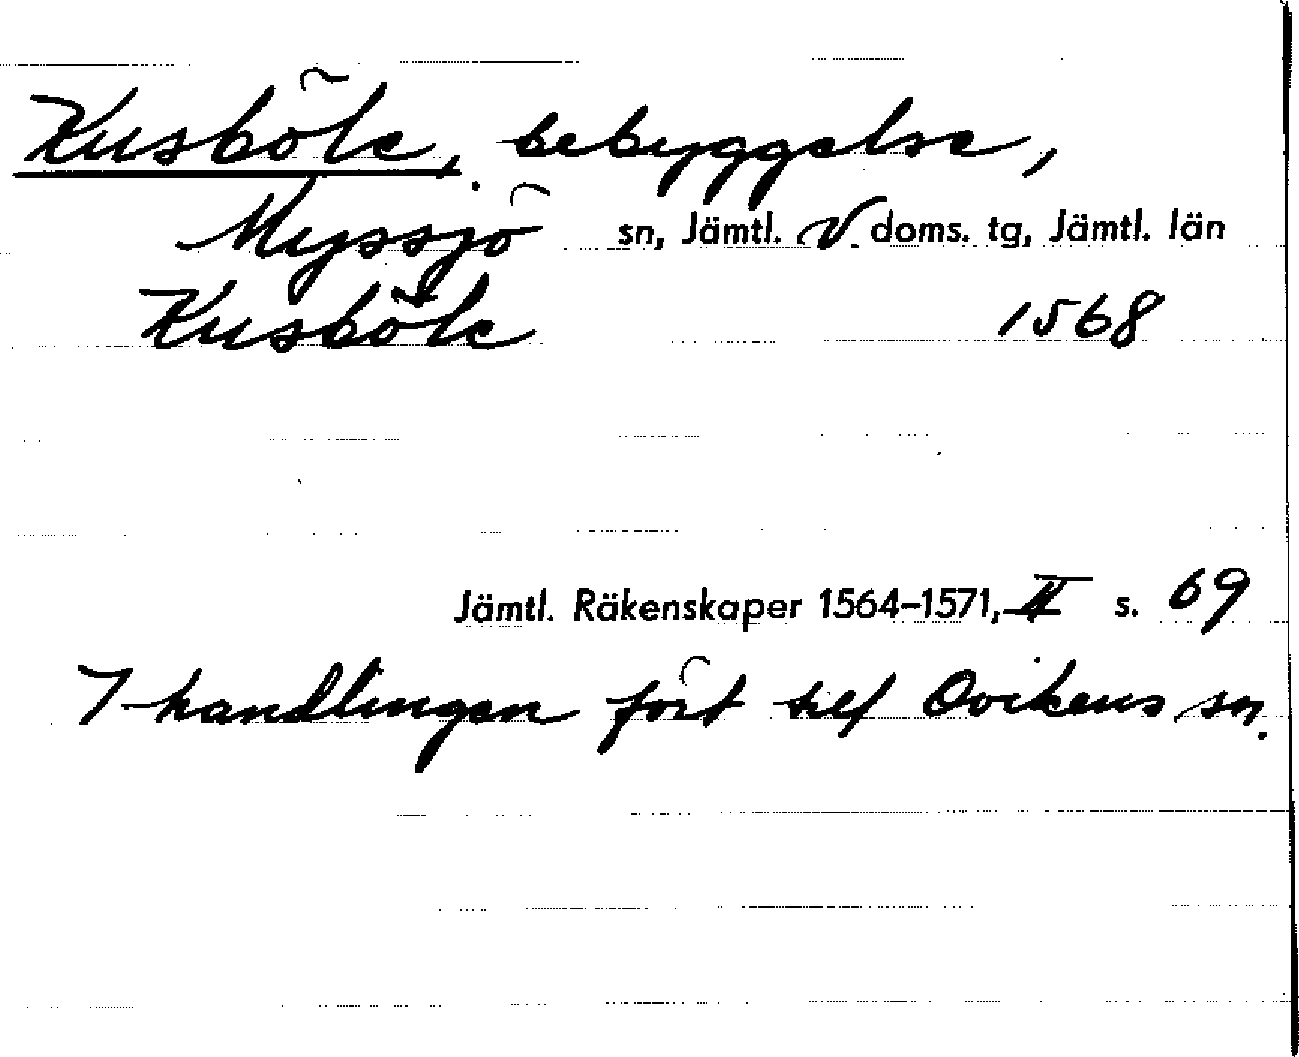 Kusböle, bebyggelse,
Myssjö sn, Jämtl. V. doms. tg, Jämtl. län
Kusböle 1568
Jämtl. Räkenskaper 1564-1571, II s. 69
I handlingen fört till Ovikens sn.